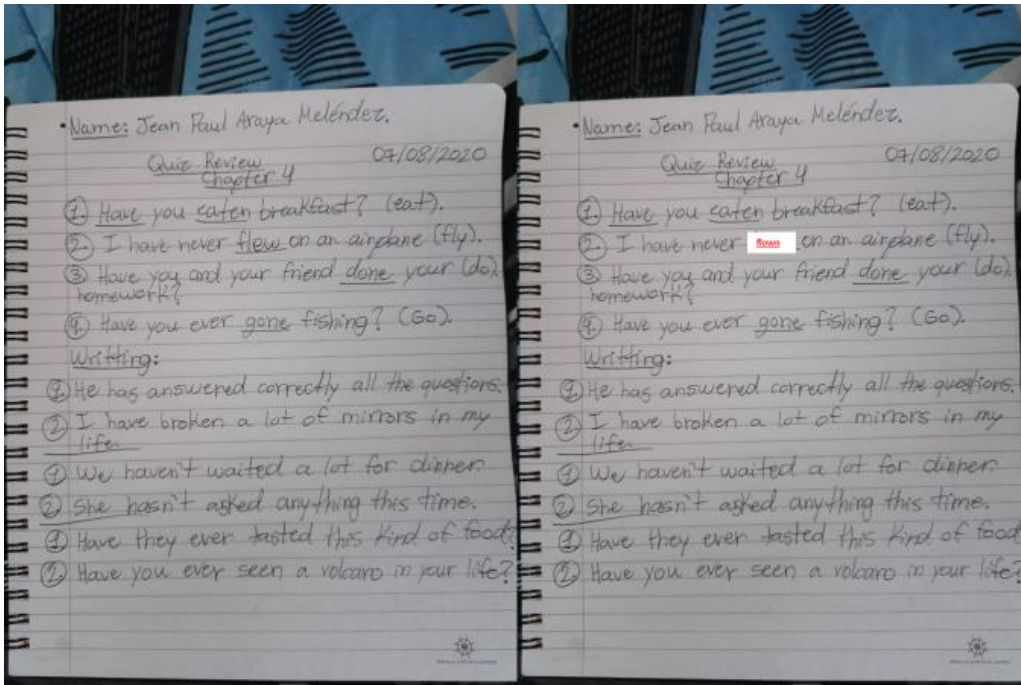 • Name: Jean Paul Araya Meléndez.
07/08/2020
Quiz Review
Chapter 4
1. Have you eaten breakfast? (eat).
2. I have never flew on an airplane (fly).
3 Have you and your friend done your (do).
homework?
4. Have you ever gone fishing? (Go).
Writting:
1 He has answered correctly all the questions.
2 I have broken a lot of mirrors in my
life.
1 We haven't waited a lot for dinner.
2 She hasn't asked anything this time.
1 Have they ever tasted this kind of food?
2 Have you ever seen a volcano in your life?
• Name: Jean Paul Araya Meléndez.
07/08/2020
Quiz Review
Chapter 4
1. Have you eaten breakfast? (eat).
2. I have never flown on an airplane (fly).
3 Have you and your friend done your (do).
homework?
4. Have you ever gone fishing? (Go).
Writting:
1 He has answered correctly all the questions.
2 I have broken a lot of mirrors in my
life.
1 We haven't waited a lot for dinner.
2 She hasn't asked anything this time.
1 Have they ever tasted this kind of food
2 Have you ever seen a volcano in your life?